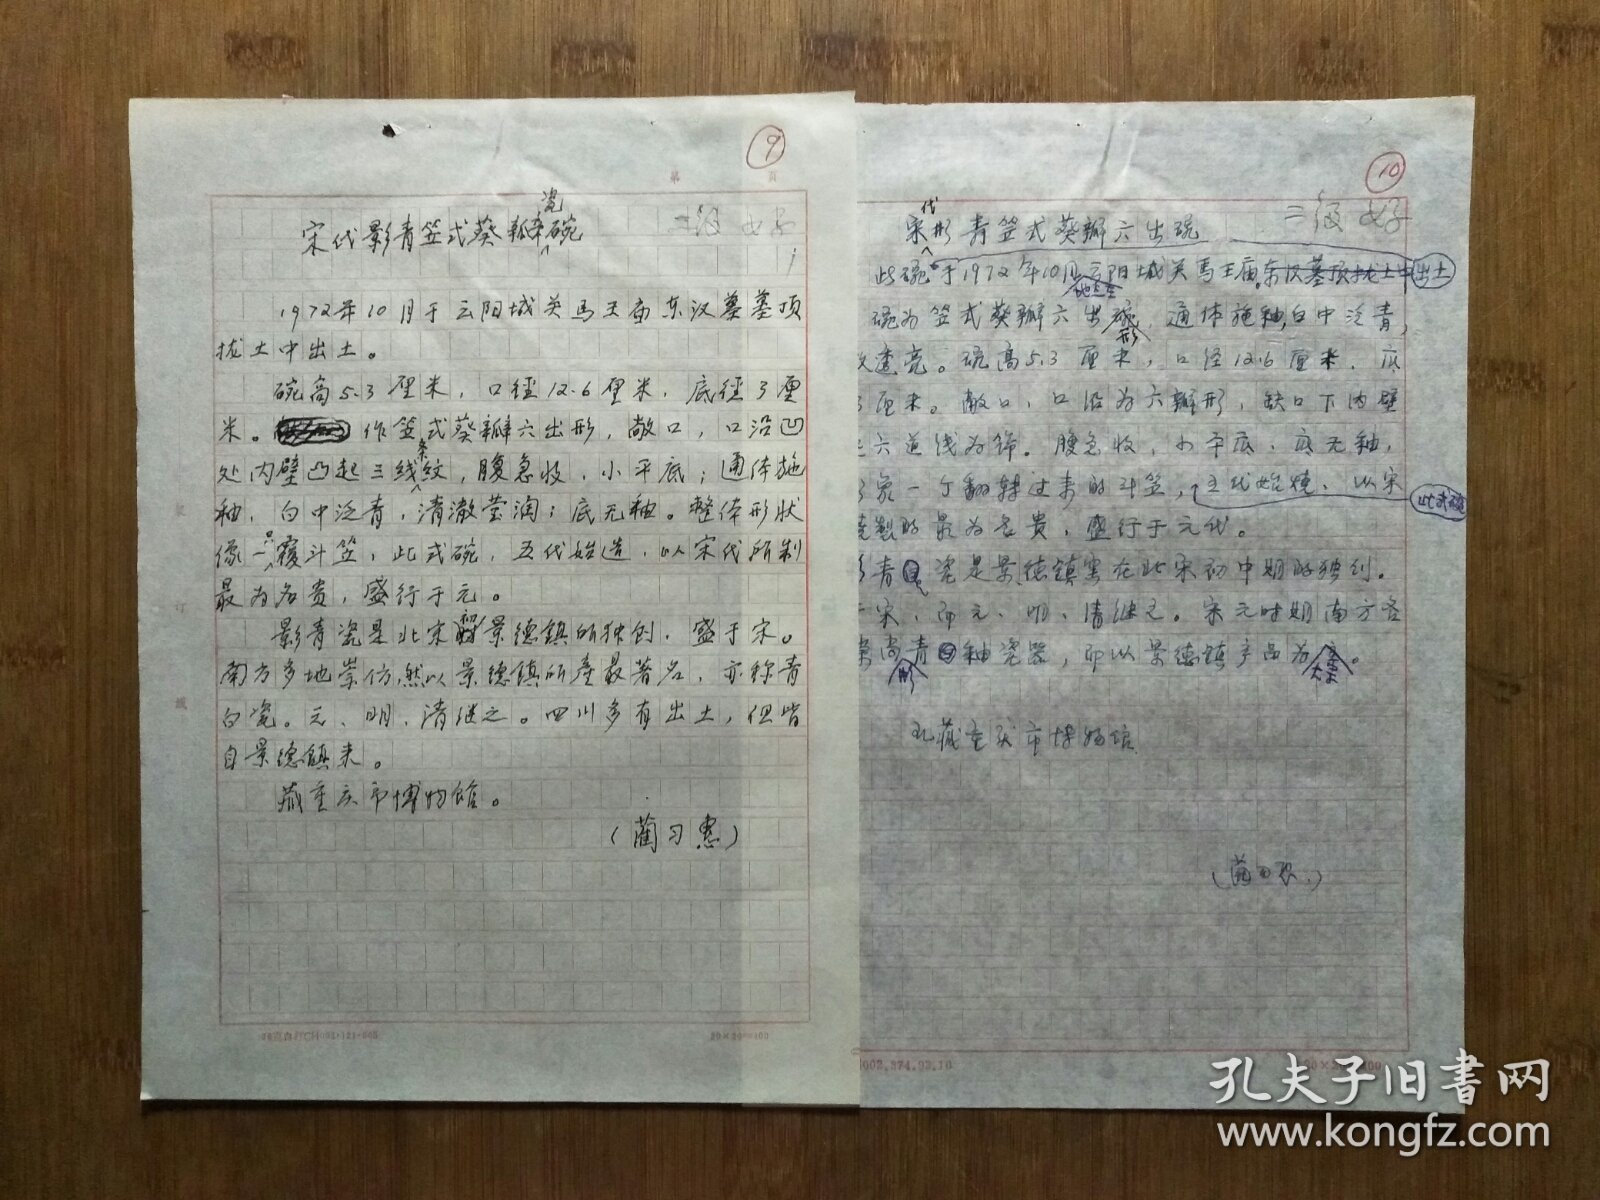 9
第 页
瓷
宋代影青笠式葵瓣碗
二级 好
1972年10月于云阳城关马王庙东汉墓墓顶
拢土中出土。
碗高5.3厘米，口径12.6厘米，底径3厘
米。作笠式葵瓣六出形，敞口，口沿凹
条
处内壁凸起三线纹，腹急收，小平底；通体施
釉，白中泛青，清澈莹润；底无釉。整体形状
只
像一覆斗笠，此式碗，五代始造，以宋代所制
最为名贵，盛行于元。
影青瓷是北宋景德镇所独创，盛于宋。
南方多地崇仿，然以景德镇所产最著名，亦称青
白瓷。元、明、清继之。四川多有出土，但皆
自景德镇来。
藏重庆市博物馆。
（蔺习惠）
装
订
线
20×20=400
10
代
宋影青笠式葵瓣六出碗
二级 好
此碗于1972年10月云阳城关马王庙东汉墓顶拢土中出土
碗为笠式葵瓣六出碗，通体施釉，白中泛青，
形
透亮。碗高5.3厘米，口径12.6厘米，底
厘米。敞口，口沿为六瓣形，缺口下内壁
六道线为饰。腹急收，小平底，底无釉，
象一个翻转过来的斗笠，五代始烧，以宋
此式碗
制的最为名贵，盛行于元代。
青瓷是景德镇窑在北宋初中期的独创。
宋，而元、明、清继之。宋元时期南方各
尚青釉瓷器，而以景德镇产品为
影
现藏重庆市博物馆
003.374.92.10
20×20=400
孔夫子旧书网
www.kongfz.com